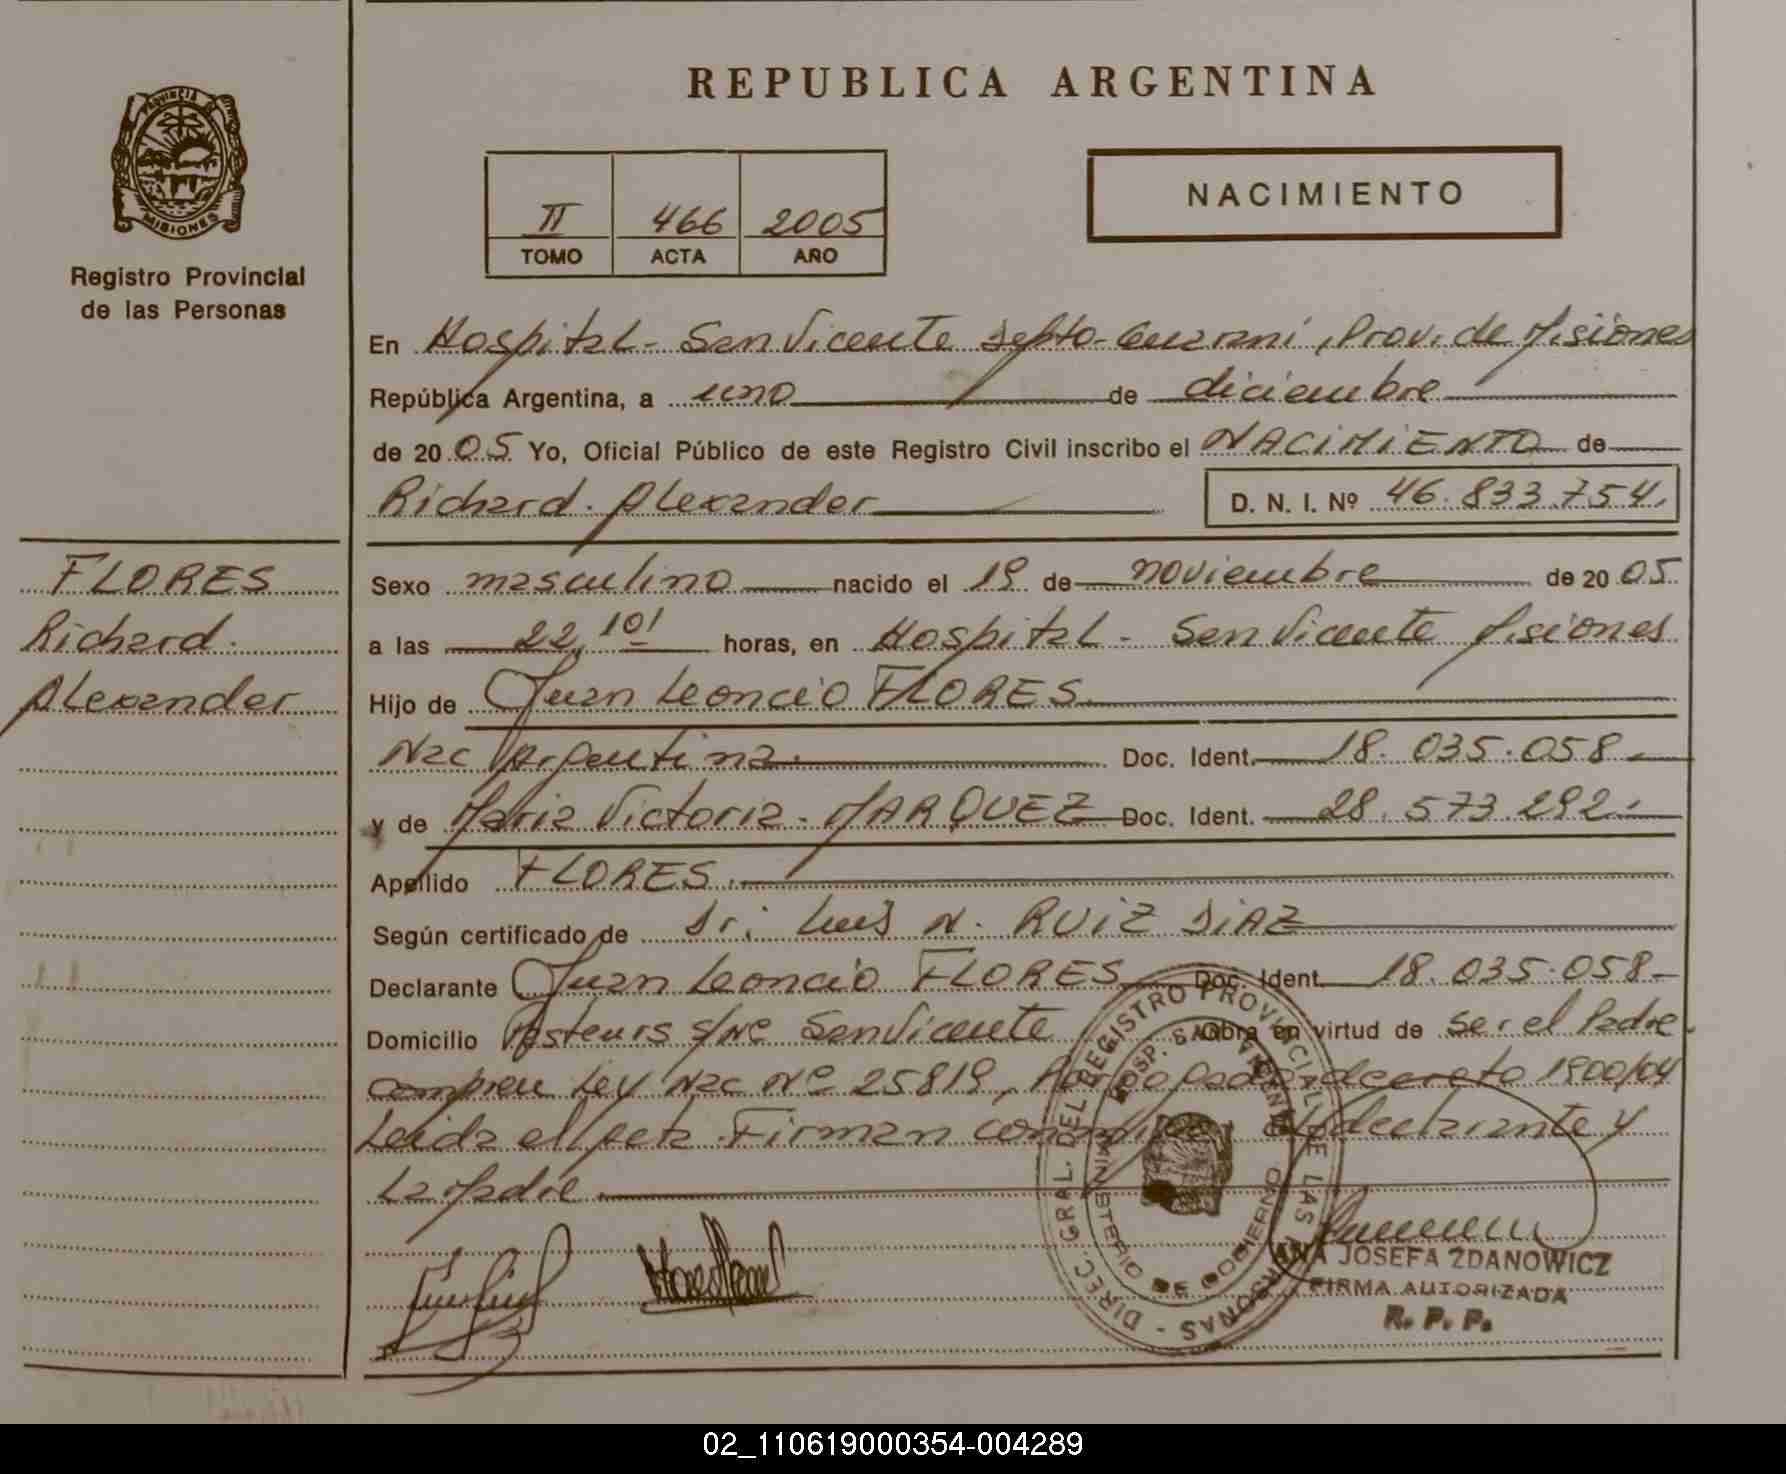 REPUBLICA ARGENTINA
PROVINCIA DE
MISIONES
Registro Provincial
de las Personas
II 466 2005
TOMO ACTA AÑO
NACIMIENTO
En Hospital - San Vicente Depto - Guarani, Prov. de Misiones
República Argentina, a uno de diciembre
de 2005 Yo, Oficial Público de este Registro Civil inscribo el NACIMIENTO de
Richard. Alexander D. N. I. Nº 46.833.754.
FLORES
Richard.
Alexander
Sexo masculino nacido el 19 de noviembre de 2005
a las 22,10' horas, en Hospital - San Vicente Misiones
Hijo de Juan Leoncio FLORES.
Nac Argentina. Doc. Ident. 18.035.058.-
y de Maria Victoria. MARQUEZ Doc. Ident. 28.573.292.-
Apellido FLORES.
Según certificado de Dr. Luis N. RUIZ DIAZ
Declarante Juan Leoncio FLORES Doc. Ident. 18.035.058-
Domicilio Pasteurs s/Nº San Vicente Obra en virtud de ser el Padre.
Ley Nac Nº 25819, decreto 1900/04
Leida el Acta. Firman el declarante y
La Madre
DIREC. GRAL. DEL REGISTRO PROVINCIAL DE LAS PERSONAS -
HOSP. SAN VICENTE
MINISTERIO DE GOBIERNO
ANA JOSEFA ZDANOWICZ
FIRMA AUTORIZADA
R. P. P.
02_110619000354-004289